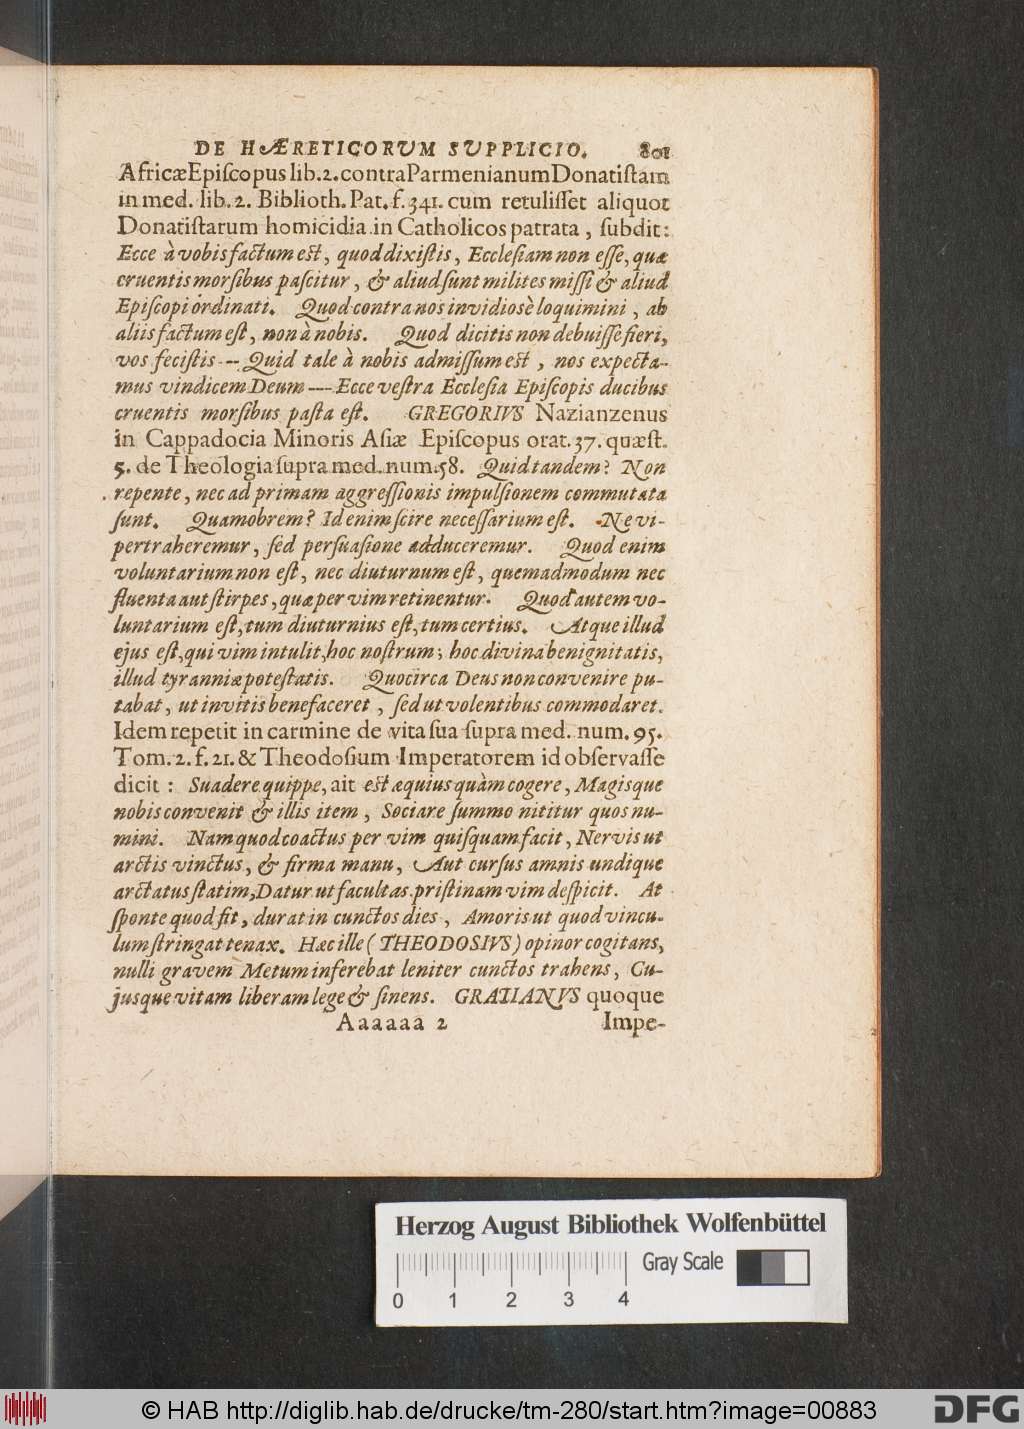 DE HÆRETICORUM SUPPLICIO. 801
Africæ Epiſcopus lib. 2. contra Parmenianum Donatiſtam
in med. lib. 2. Biblioth. Pat. f. 341. cum retuliſſet aliquot
Donatiſtarum homicidia in Catholicos patrata, ſubdit:
Ecce à vobis factum est, quod dixiſtis, Eccleſiam non eſſe, quæ
cruentis morſibus paſcitur, & aliud ſunt milites miſſi & aliud
Epiſcopi ordinati. Quod contra nos invidiosè loquimini, ab
aliis factum eſt, non à nobis. Quod dicitis non debuiſſe fieri,
vos feciſtis -- Quid tale à nobis admiſſum est, nos expecta-
mus vindicem Deum ---- Ecce veſtra Eccleſia Epiſcopis ducibus
cruentis morſibus paſta eſt. GREGORIVS Nazianzenus
in Cappadocia Minoris Aſiæ Epiſcopus orat. 37. quæſt.
5. de Theologia ſupra med. num. 58. Quid tandem? Non
repente, nec ad primam aggreſſionis impulſionem commutata
ſunt. Quamobrem? Id enim ſcire neceſſarium eſt. Ne vi-
pertraheremur, ſed perſuaſione adduceremur. Quod enim
voluntarium non eſt, nec diuturnum eſt, quemadmodum nec
fluenta aut ſtirpes, quæ per vim retinentur. Quod autem vo-
luntarium eſt, tum diuturnius eſt, tum certius. Atque illud
ejus eſt, qui vim intulit, hoc noſtrum; hoc divina benignitatis,
illud tyrannia poteſtatis. Quocirca Deus non convenire pu-
tabat, ut invitis benefaceret, ſed ut volentibus commodaret.
Idem repetit in carmine de vita ſua ſupra med. num. 95.
Tom. 2. f. 21. & Theodoſium Imperatorem id obſervaſſe
dicit: Suadere quippe, ait est æquius quàm cogere, Magisque
nobis convenit & illis item, Sociare ſummo nititur quos nu-
mini. Nam quod coactus per vim quiſquam facit, Nervis ut
arctis vinctus, & firma manu, Aut curſus amnis undique
arctatus ſtatim, Datur ut facultas priſtinam vim deſpicit. At
ſponte quod fit, durat in cunctos dies, Amoris ut quod vincu-
lum ſtringat tenax. Hæc ille (THEODOSIVS) opinor cogitans,
nulli gravem Metum inferebat leniter cunctos trahens, Cu-
jusque vitam liberam lege & ſinens. GRATIANVS quoque
Aaaaaa 2 Impe-
Herzog August Bibliothek Wolfenbüttel
Gray Scale
0 1 2 3 4
© HAB http://diglib.hab.de/drucke/tm-280/start.htm?image=00883
DFG